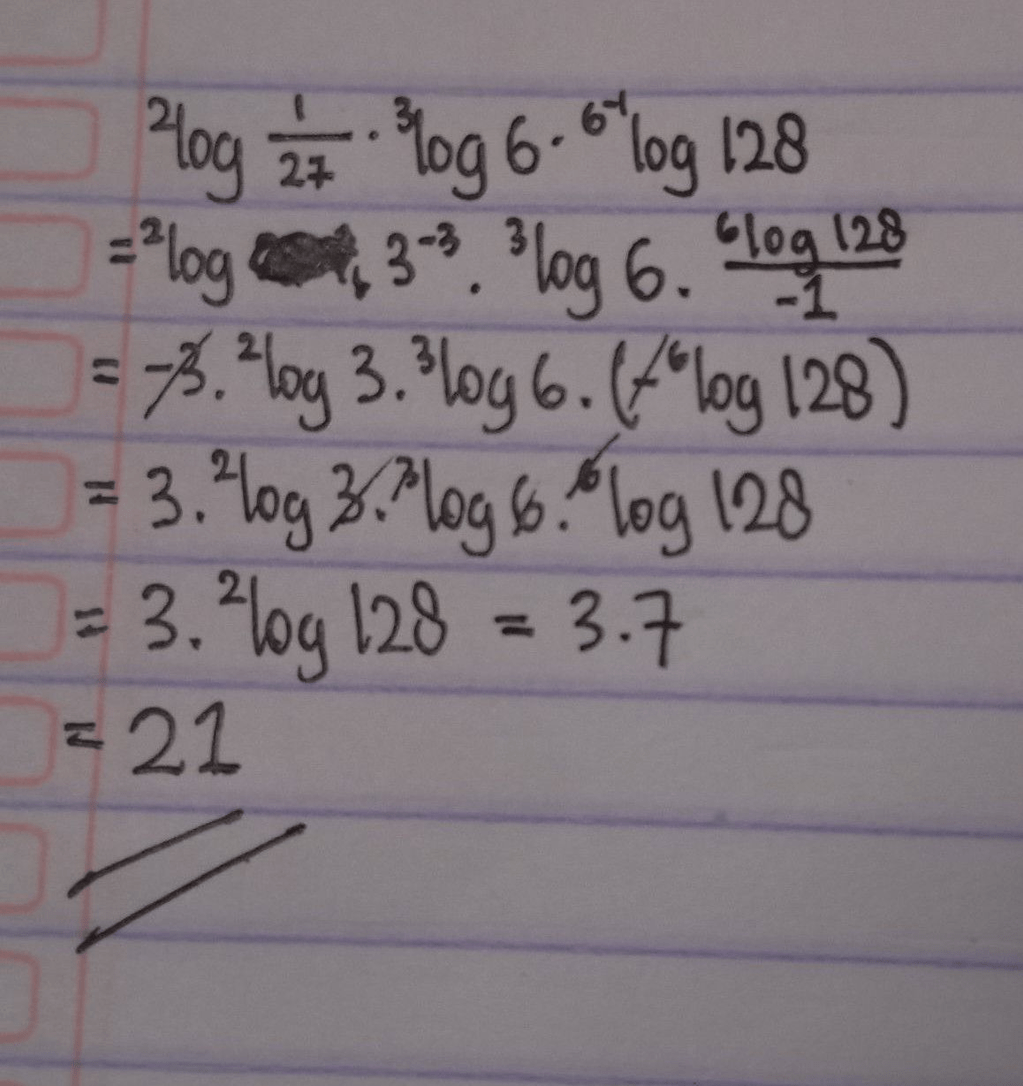 ²log 1/27 · ³log 6 · ⁶⁻¹log 128
= ²log 3⁻³ . ³log 6 . ⁶log 128/-1
= -3 . ²log 3 . ³log 6 . (-⁶log 128)
= 3 . ²log 3 . ³log 6 . ⁶log 128
= 3 . ²log 128 = 3 . 7
= 21